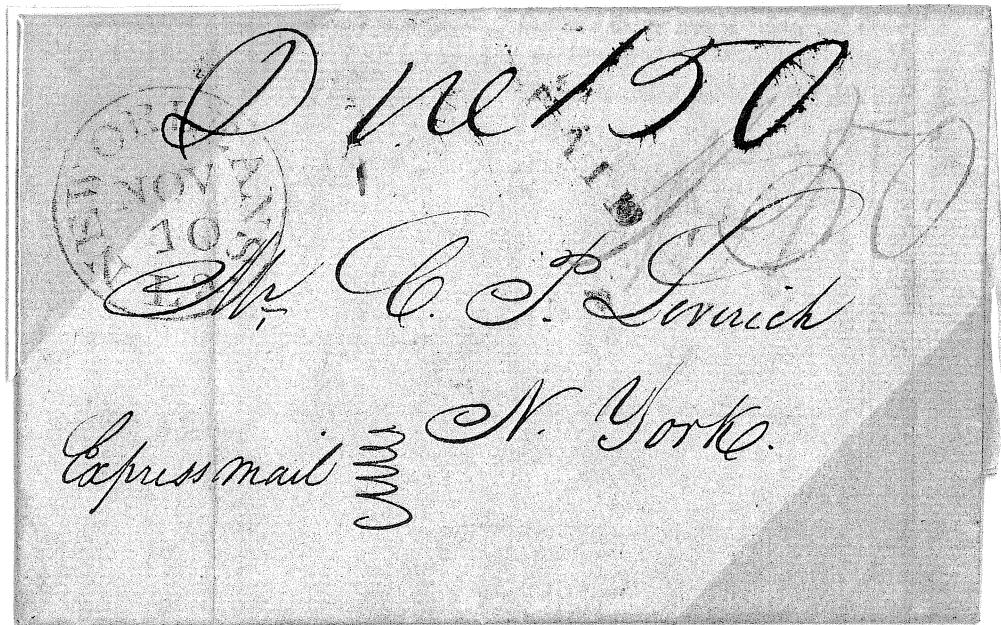 One 150
PAID
150
NEW ORLEANS
NOV
10
Mr. C. P. Leverich
N. York.
Express mail